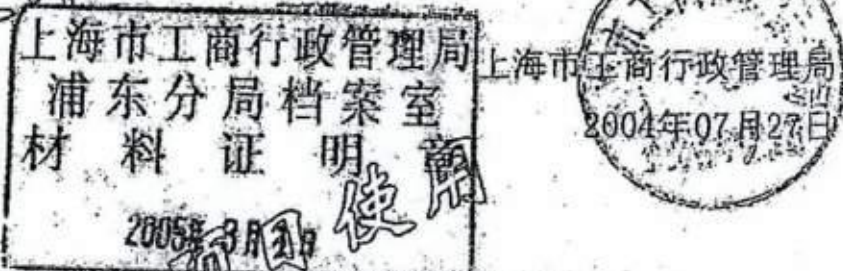 上海市工商行政管理局
浦东分局档案室
材料证明章
2005年3月
使用
上海市工商行政管理局
2004年07月27日